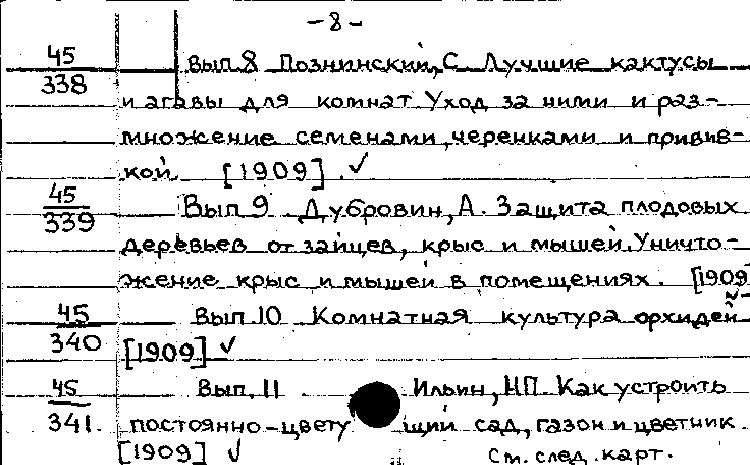 -8-
45 Вып.8 Познинский, С. Лучшие кактусы
338 и агавы для комнат. Уход за ними и раз-
множение семенами, черенками и привив-
кой. [1909]. ✓
45 Вып.9 Дубровин, А. Защита плодовых
339 деревьев от зайцев, крыс и мышей. Уничто-
жение крыс и мышей в помещениях. [1909
45 Вып.10 Комнатная культура орхидей
340 [1909] ✓
45 Вып.11 Ильин, НП. Как устроить
341. постоянно-цвету щий сад, газон и цветник.
[1909] ✓ См. след. карт.